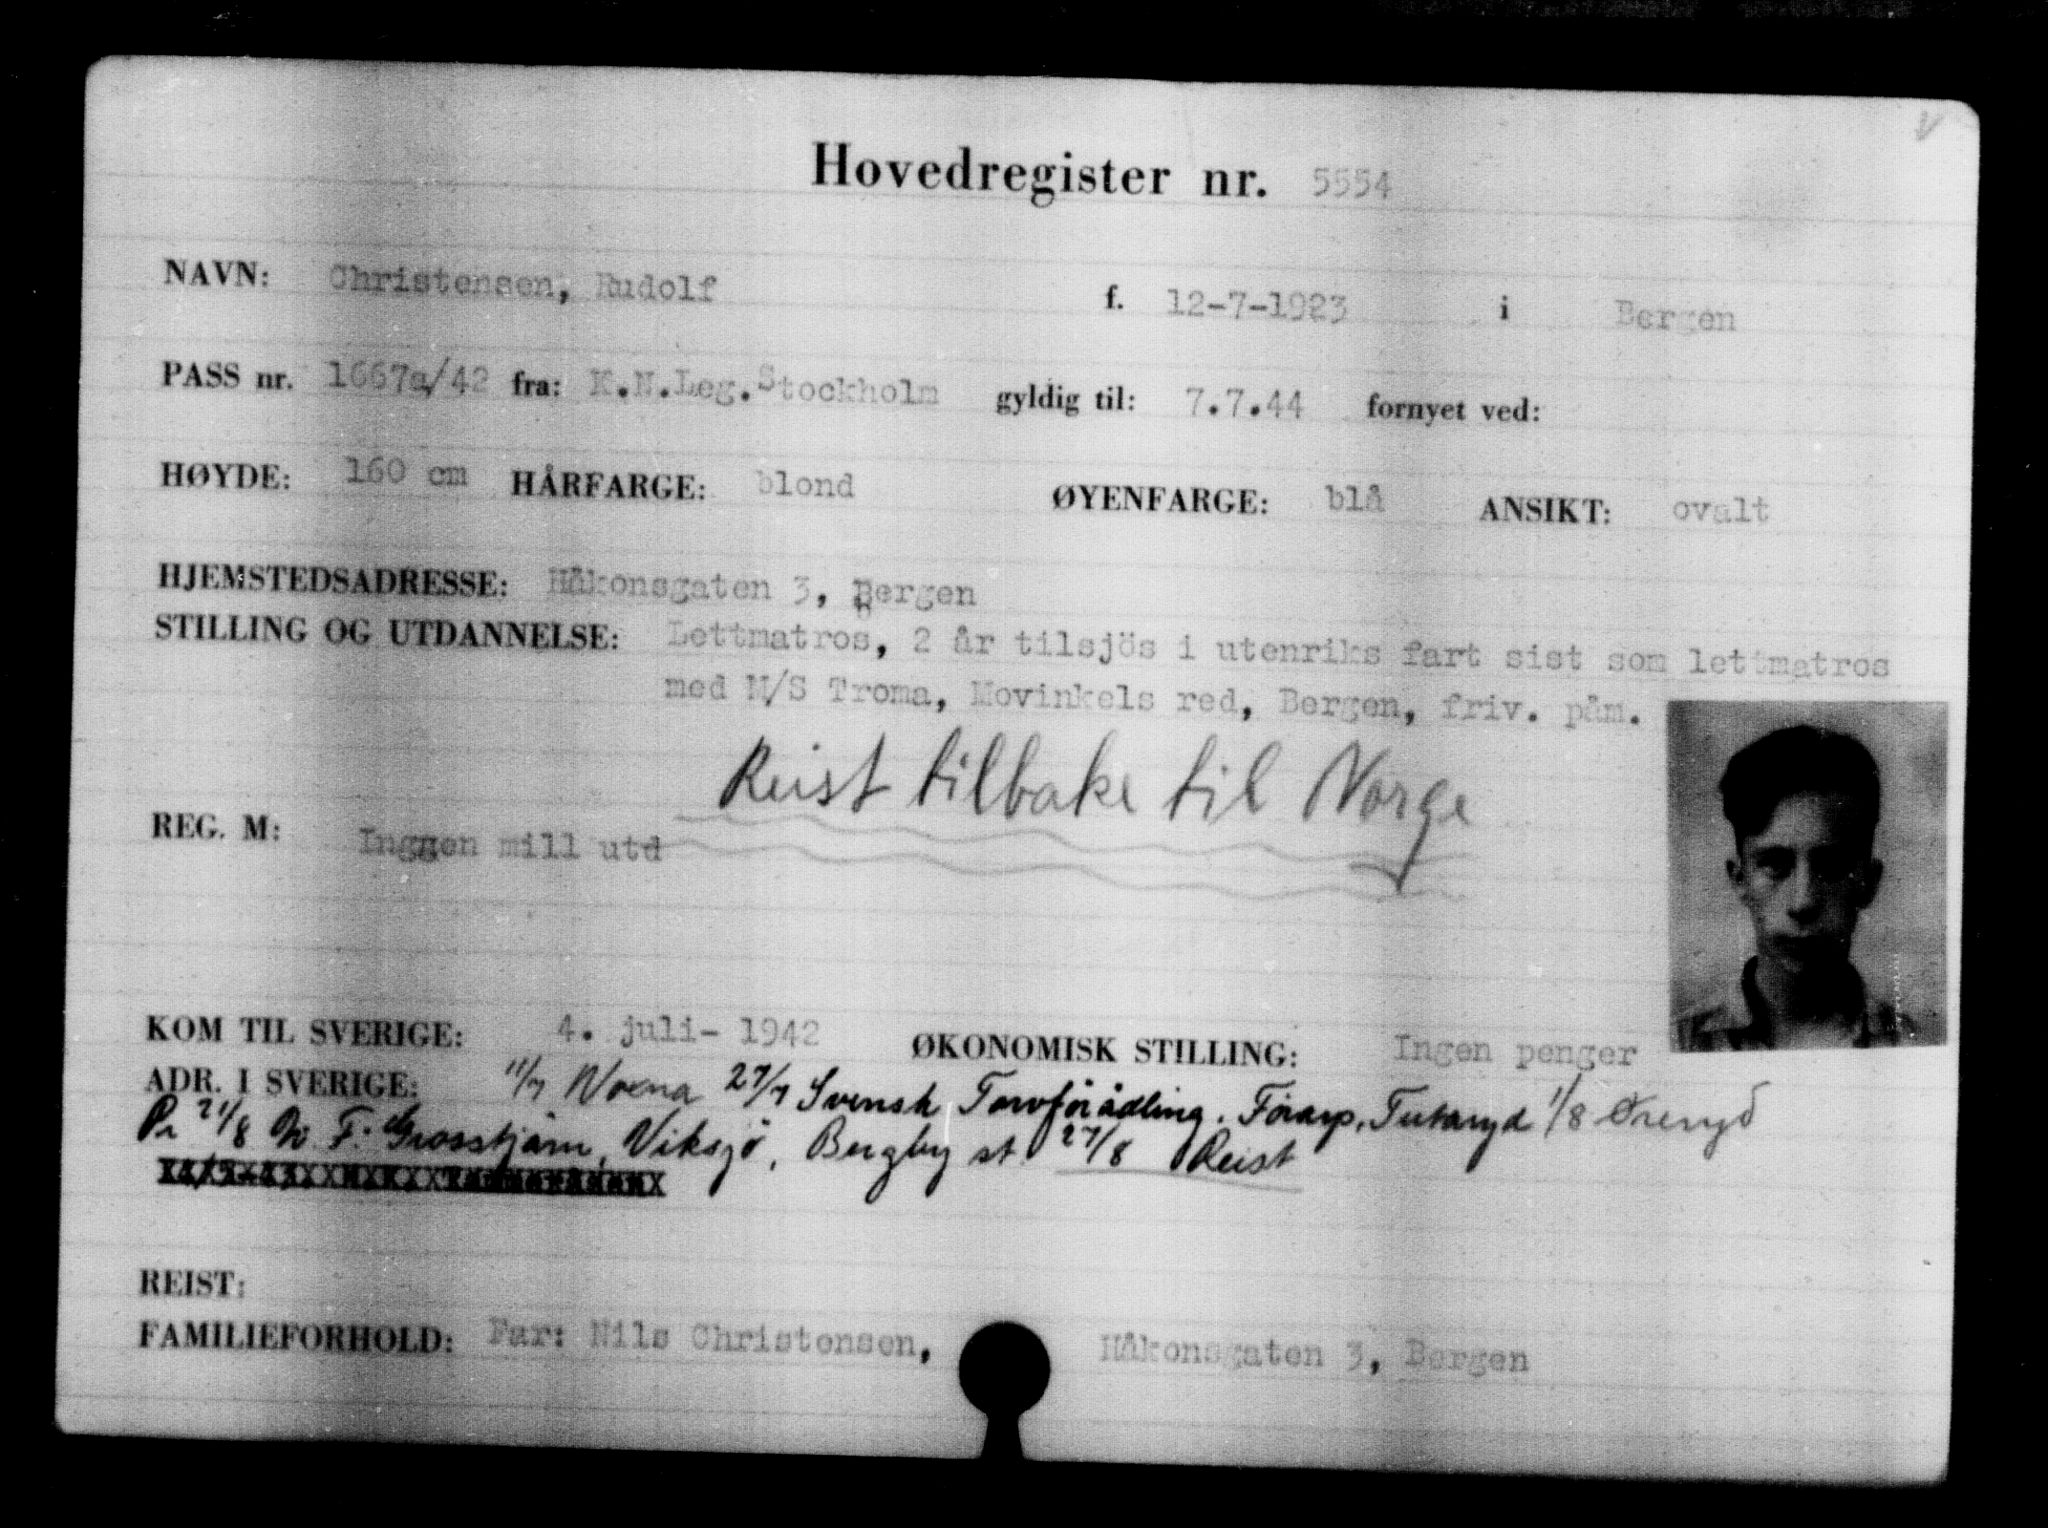 Hovedregister nr. 5554
NAVN: Christensen, Rudolf f. 12-7-1923 i Bergen
PASS nr. 1667a/42 fra: K.N.Leg.Stockholm gyldig til: 7.7.44 fornyet ved:
HØYDE: 160 cm HÅRFARGE: blond ØYENFARGE: blå ANSIKT: ovalt
HJEMSTEDSADRESSE: Håkonsgaten 3, Bergen
STILLING OG UTDANNELSE: Lettmatros, 2 år tilsjös i utenriks fart sist som lettmatros
med M/S Troma, Movinkels red, Bergen, friv. påm.
Reist tilbake til Norge
REG. M: Inggen mill utd
KOM TIL SVERIGE: 4. juli- 1942 ØKONOMISK STILLING: Ingen penger
ADR. I SVERIGE: 11/7 Norna 27/7 Svensk Torvförädling, Förarp, Tutaryd 1/8 Öreryd
Pr 21/8 Grosstjärn, Viksjö, Bergby st. 27/8 Reist
REIST:
FAMILIEFORHOLD: Far: Nils Christensen, Håkonsgaten 3, Bergen